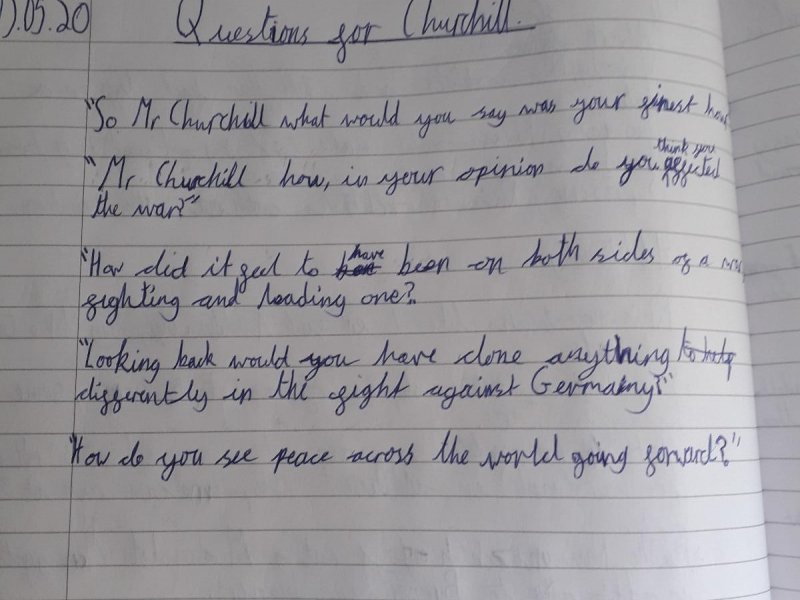 ).05.20
Questions for Churchill.
"So Mr Churchill what would you say was your finest hour
"Mr Churchill how, in your opinion do you think you affected
the war?"
"How did it feel to have been on both sides of a war,
fighting and leading one?
"Looking back would you have done anything to help
differently in the fight against Germany?"
"How do you see peace across the world going forward?"